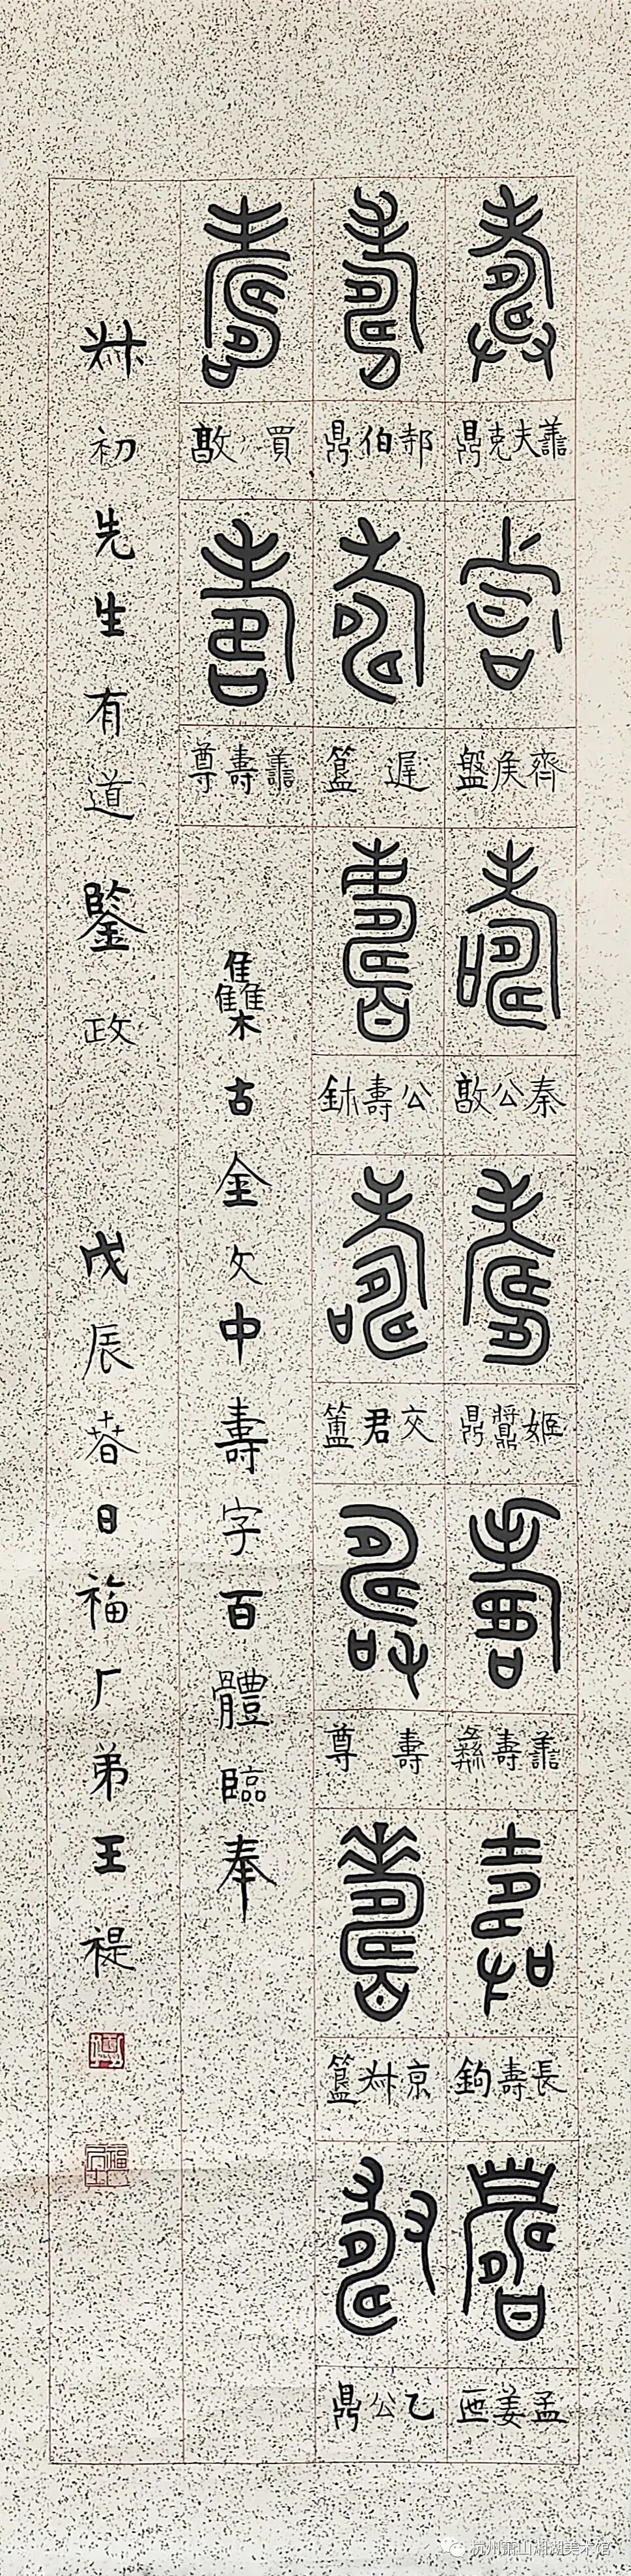 壽
善夫克鼎
壽
齊侯盤
壽
秦公敦
壽
姬鼎
壽
善壽彝
壽
長壽鉤
壽
孟姜匜
壽
郝伯鼎
壽
遟簋
壽
公壽鉥
壽
交君簠
壽
壽尊
壽
京叔簋
壽
乙公鼎
壽
買敦
壽
善壽尊
集古金文中壽字百體臨奉
叔初先生有道鑒政 戊辰春日福厂弟王禔
杭州萧山湘湖美术馆